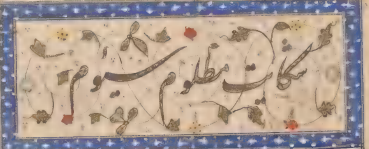 شکایت مظلوم سیوم